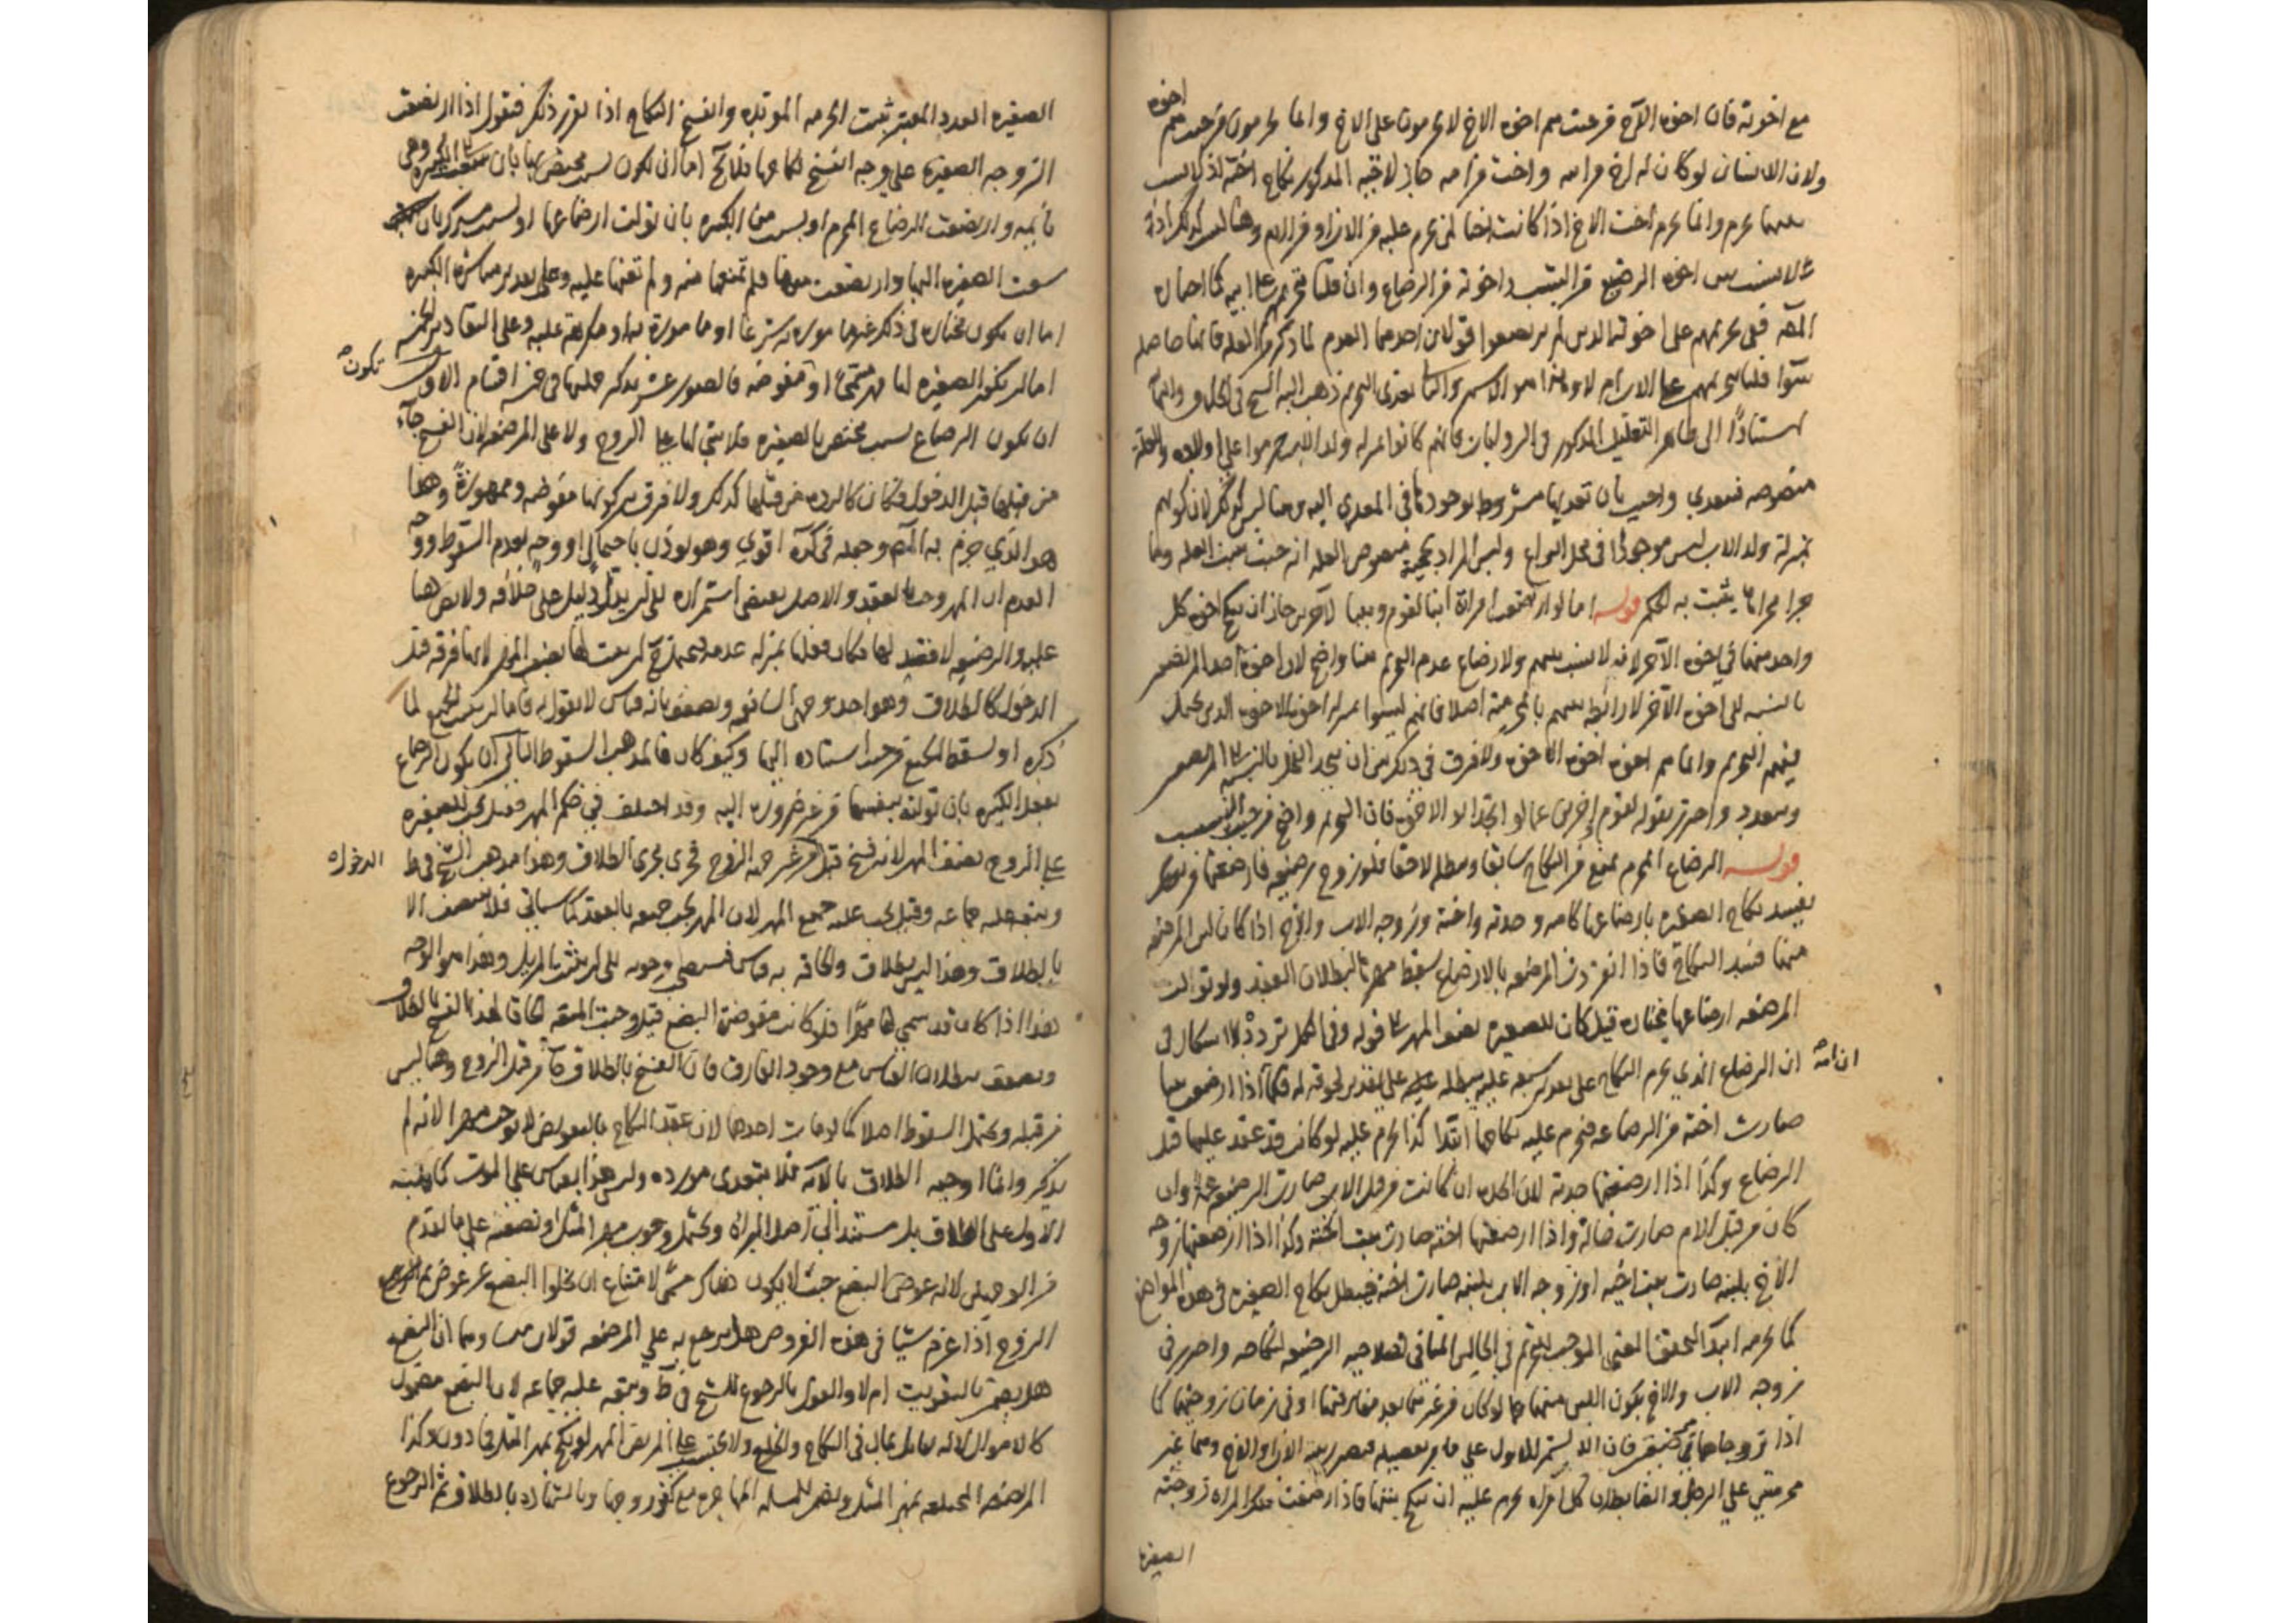 اخوة
مع اخوته فان اخوة الاخ من حيث هم اخوة الاخ لا يحرمون على الاخ وانما يحرمون من حيث هم
ولان الانسان لو كان له اخ من امه واخت من امه جاز لاخيه المذكور نكاح اخته اذ لا نسب
بينهما يحرم وانما يحرم اخت الاخ اذا كانت اختا لمن يحرم عليه من الاب او من الام وهنا ليس كذلك اذ
لا نسب بين اخوة الرضيع من النسب واخوته من الرضاع وان قلنا بتحريم على ابيه كما اختاره
المصنف ففي تحريمهم على اخوته الذين لم يرتضعوا قولان احدهما العدم لما ذكر من العلة فانها حاصلة
سواء قلنا بتحريمهم على الاب ام لا وهذا هو الاشهر والثاني تعدي التحريم ذهب اليه الشيخ في الخلاف والنهاية
استنادا الى ظاهر التعليل المذكور في الروايات فانهم كانوا بمنزلة ولد الاب حرموا على اولاده والعلة
منصوصة فتتعدى واجيب بان تعديها مشروط بوجودها في المعدى اليه وهنا ليس كذلك لان كونهم
بمنزلة ولد الاب ليس موجودا في محل النزاع وليس المراد بحجية منصوص العلة انه حيث تثبت العلة وما
جرى مجراها يثبت به الحكم قوله اما لو ارتضعت امراة ابنا لقوم وبنتا لآخرين جاز ان ينكح اخوة كل
واحد منهما في اخوة الآخر لانه لا نسب بينهم ولا رضاع عدم التحريم هنا واضح لان اخوة احد المرتضعين
بالنسبة الى اخوة الآخر لا رابطة بينهم بالمحرمية اصلا فانهم ليسوا بمنزلة اخوة الاخوة الذين يحتمل
فيهم التحريم وانما هم اخوة اخوة الاخوة ولا فرق في ذلك بين ان يتحد الفحل بالنسبة الى المرتضعين
ويتعدد واحترز بقوله لقوم آخرين عما لو اتحد الاب او الاخوة فان التحريم واضح من حيث النسب
قوله الرضاع المحرم يمنع من النكاح سابقا ويبطله لاحقا فلو تزوج رضيعة فارضعتها من
يفسد نكاح الصغيرة بارضاعها كامه وجدته واخته وزوجة الاب والاخ اذا كان لبن المرضعة
منهما فسد النكاح فاذا انفردت المرتضعة بالارتضاع سقط مهرها لبطلان العقد ولو تولت
المرضعة ارضاعها مختارة قيل كان للصغيرة نصف المهر الى قوله وفي الكل تردد لا اشكال في
ان الرضاع الذي يحرم النكاح على تقدير سبقه عليه يبطله على تقدير لحوقه له فكما اذا ارضعتها
صارت اخته من الرضاعة فتحرم عليه نكاحها ابتداء كذا يحرم عليه لو كان قد عقد عليها قبل
الرضاع وكذا اذا ارضعتها جدته لان الجدة ان كانت من قبل الاب صارت الرضيعة عمة وان
كان من قبل الام صارت خالة واذا ارضعتها اخته صارت بنت اخته وكذا اذا ارضعتها زوجة
الاخ بلبنه صارت بنت اخيه او زوجة الاب بلبنه صارت اخته فيبطل نكاح الصغيرة في هذه المواضع
كما يحرم ابتداء لتحقق المعنى الموجب للتحريم في الحالين المنافي لصلاحية الرضيعة لنكاحه واحترز في
زوجة الاب والاخ بكون اللبن منهما عما لو كان من غيرهما بعد مفارقتهما او في زمان زوجيتهما كما
اذا تزوجاها مرضعة
محرمتين على الرجل والضابط ان كل امراة يحرم عليه ان ينكح بنتها فاذا ارضعت تلك المراة زوجته
الصغيرة
الصغيرة العدد المعتبر ثبتت الحرمة المؤبدة وانفسخ النكاح اذا تقرر ذلك فنقول اذا ارتضعت
الزوجة الصغيرة على وجه انفسخ نكاحها فلا يخ اما ان يكون بسبب مختص بها بان سعت الى الكبيرة وهي
نائمة وارتضعت الرضاع المحرم او بسبب من الكبيرة بان تولت ارضاعها او بسبب مشترك بان
سعت الصغيرة اليها وارتضعت منها فلم تمنعها منه ولم تعنها عليه وعلى تقدير مباشرة الكبيرة
اما ان تكون مختارة في ذلك غير مامورة به شرعا او مامورة به او مكرهة عليه وعلى التقادير الخمسة
اما ان تكون الصغيرة لها مهر مسمى او مفوضة فالصور عشر يذكر حكمها في خمسة اقسام الاول
تكون
ان يكون الرضاع بسبب مختص بالصغيرة فلا شيء لها على الزوج ولا على المرضعة لان الفسخ جاء
من قبلها قبل الدخول فكان كالردة من قبلها كذلك ولا فرق بين كونها مفوضة وممهورة وهذا
هو الذي جزم به المصنف وجعله في كره اقوى وهو يؤذن باحتمال او وجه بعدم السقوط ووجه
العدم ان المهر وجب بالعقد والاصل يقتضي استمراره الى ان يدل دليل على خلافه ولا نص هنا
عليه والرضيعة لا قصد لها فكان فعلها بمنزلة عدمه ويحتمل ح ان يثبت لها نصف المهر لانها فرقة قبل
الدخول كالطلاق وهو احد وجهي الشافعية ويضعف بانه قياس لا نقول به فاما ان يثبت الجميع لما
ذكر او يسقط الجميع من حيث استناده اليها وكيف كان فالمذهب السقوط الثاني ان يكون الرضاع
بفعل الكبيرة بان تولته بنفسها من غير ضرورة اليه وقد اختلف في حكم المهر فقيل يجب للصغيرة
على الزوج نصف المهر لانه فسخ قبل من غير جهة الزوج فجرى مجرى الطلاق وهذا مذهب الشيخ في ط
الدخول
وتبعه عليه جماعة وقيل يجب عليه جميع المهر لان المهر يجب جميعه بالعقد كما سياتي فلا يتنصف الا
بالطلاق وهذا ليس بطلاق والحاقه به قياس فيستصحب وجوبه الى ان يثبت المزيل وهذا هو الوجه
هذا اذا كان قد سمى لها مهرا فلو كانت مفوضة البضع قيل وجبت المتعة الحاقا لهذا الفسخ بالطلاق
ويضعف ببطلان القياس مع وجود الفارق فان الفسخ بالطلاق جاء من قبل الزوج وهنا ليس
من قبله ويحتمل السقوط اصلا كما لو مات احدهما لان عقد النكاح بالتفويض لا يوجب مهرا لانه لم
يذكر وانما اوجبه الطلاق بالآية فلا يتعدى مورده وليس هذا بقياس على الموت كما
الاول على الطلاق بل مستند الى اصل البراءة ويحتمل وجوب مهر المثل او نصفه على ما تقدم
من الوجهين لانه عوض البضع حيث لا يكون هناك مسمى لامتناع ان يخلو البضع عن عوض ثم
الزوج اذا غرم شيئا في هذه الفروض هل يرجع به على المرضعة قولان مبناهما ان البضع
هل يضمن بالتفويت ام لا والقول بالرجوع للشيخ في ط وتبعه عليه جماعة لان البضع مضمون
كالاموال لانه يقابل بمال في النكاح والخلع ولا يحتسب على المريض المهر لو نكح بمهر المثل فما دون وكذا
المريضة المختلعة بمهر المثل وبضمن للمسلمة المهاجرة مع كفر زوجها وبالشهادة بالطلاق ثم الرجوع